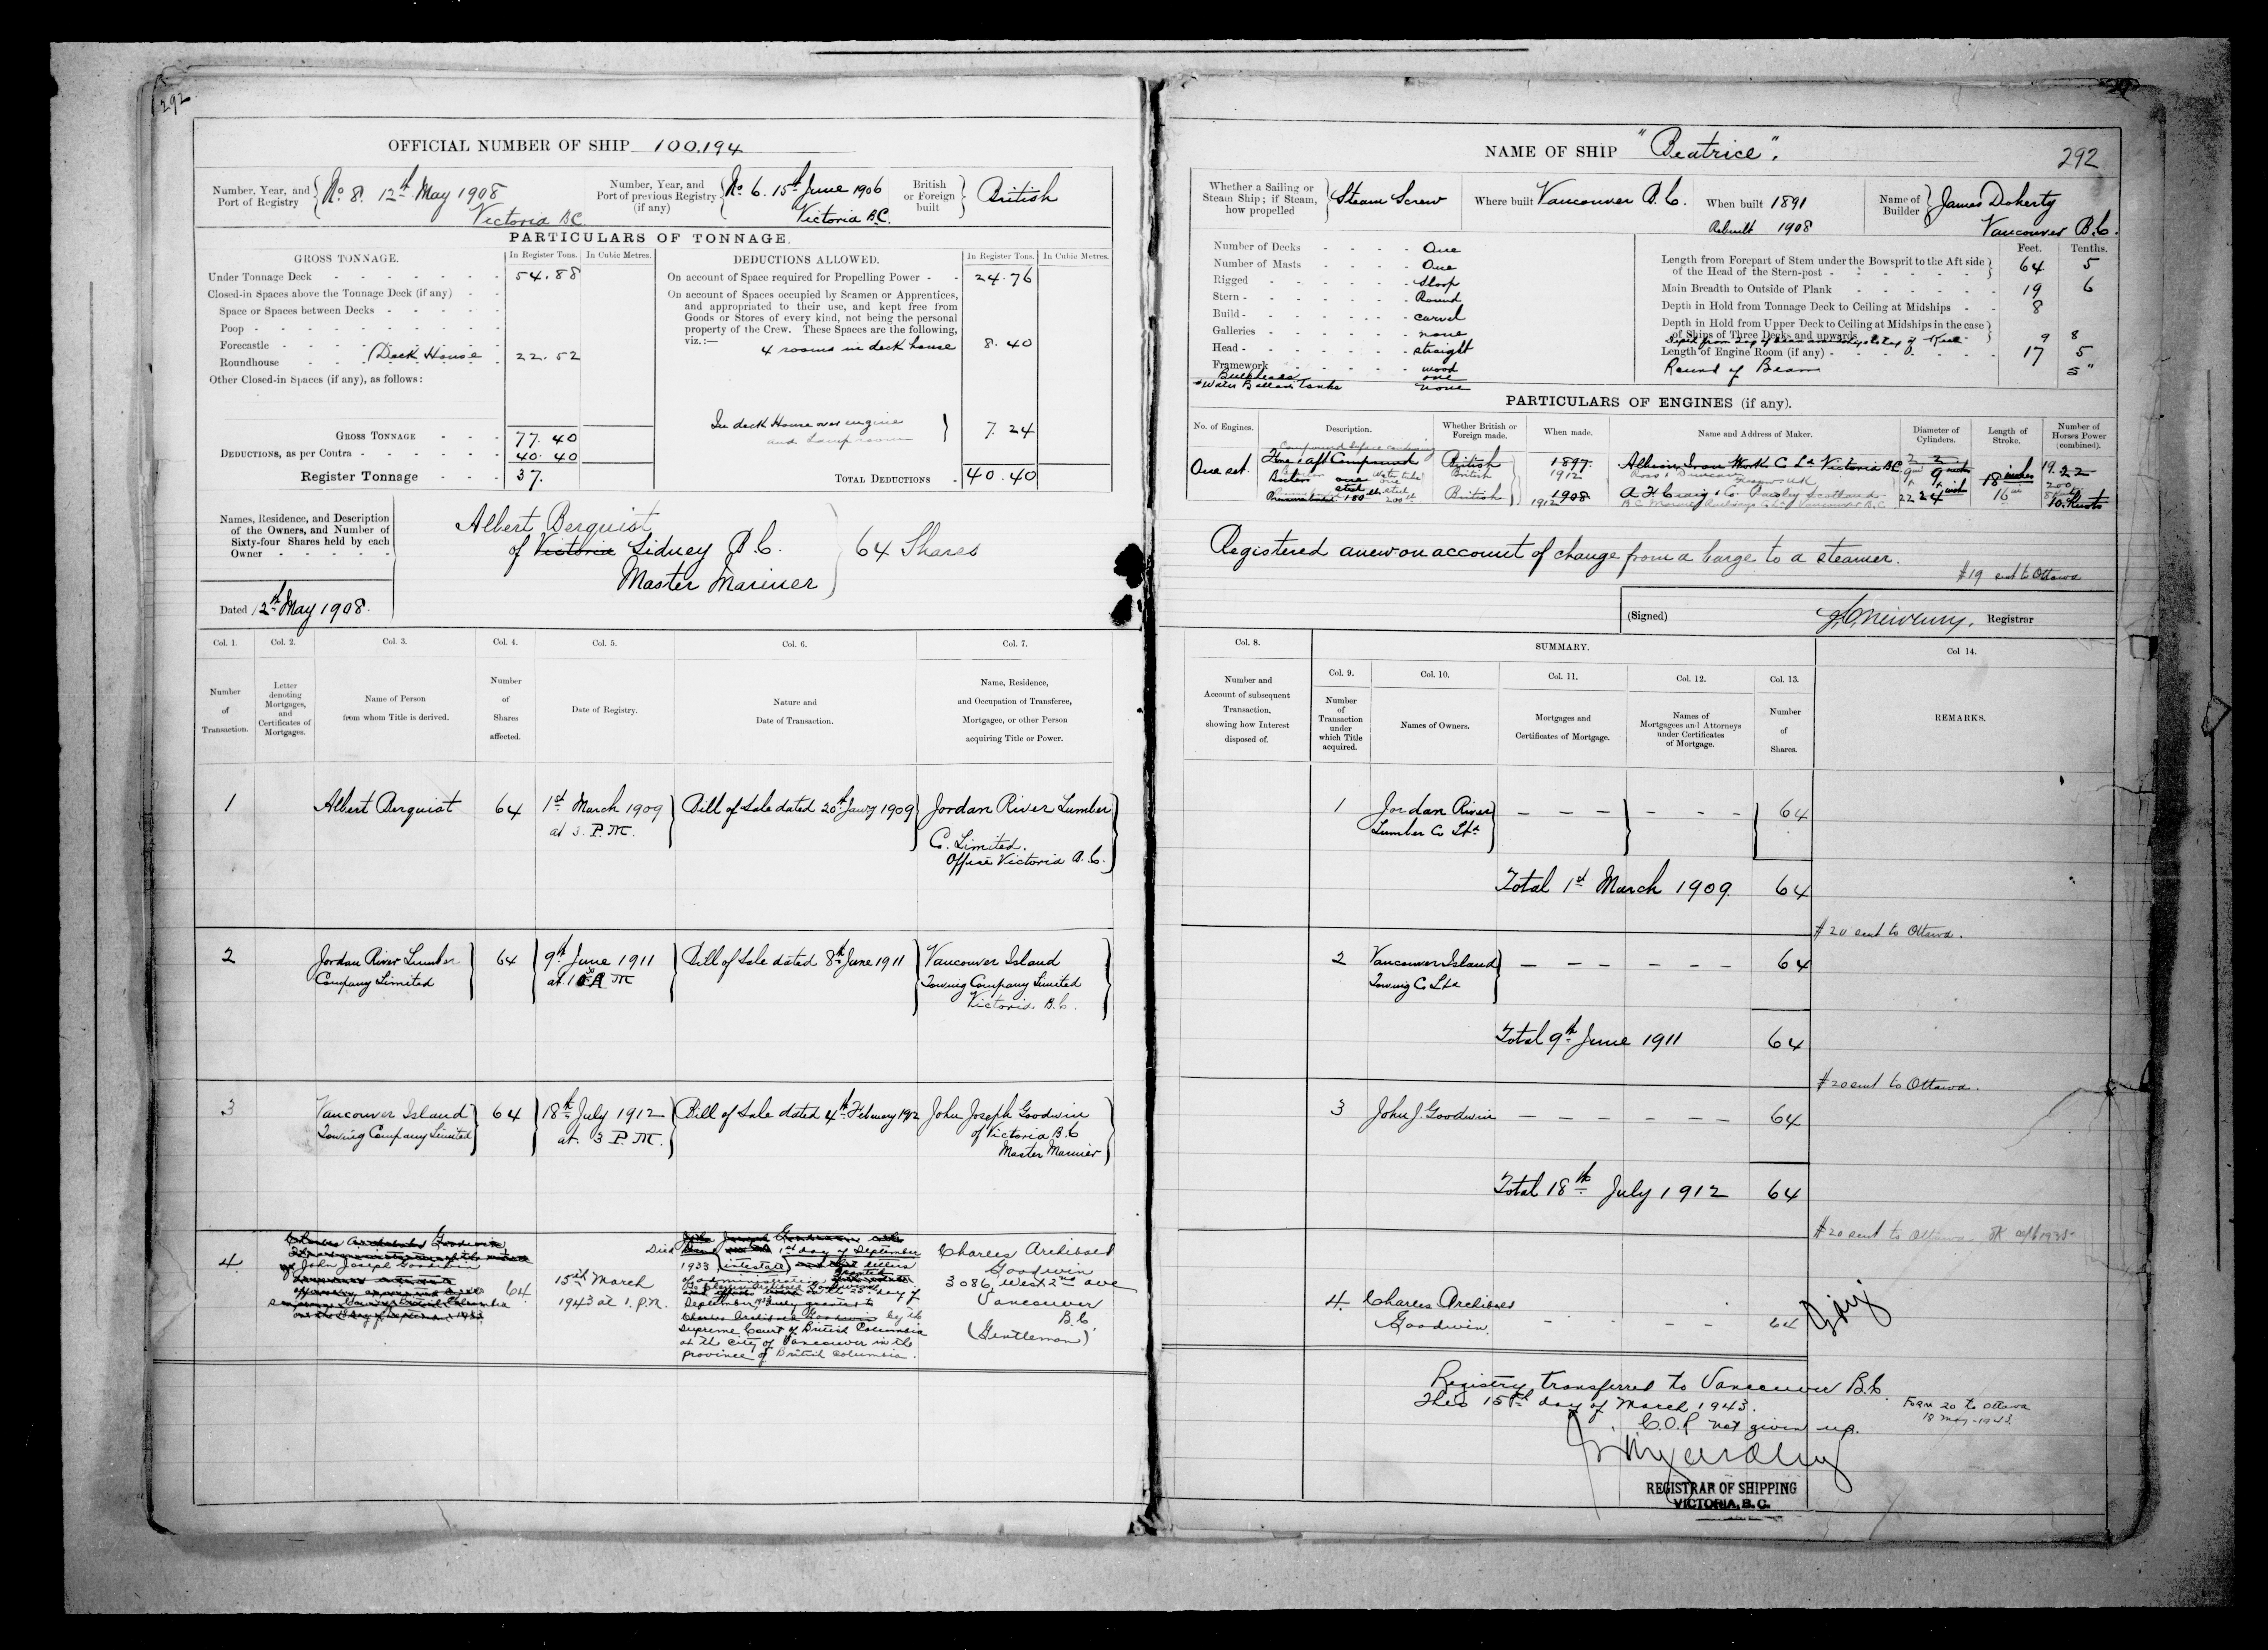 292
OFFICIAL NUMBER OF SHIP 100,194
Number, Year, and Port of Registry No 8. 12th May 1908 Victoria BC
Number, Year, and Port of previous Registry (if any) No. 6. 15th June 1906 Victoria B.C.
British or Foreign built British
PARTICULARS OF TONNAGE.
GROSS TONNAGE. In Register Tons. In Cubic Metres.
Under Tonnage Deck 54.88
Closed-in Spaces above the Tonnage Deck (if any)
Space or Spaces between Decks
Poop
Forecastle
Roundhouse (Deck House 22.52
Other Closed-in Spaces (if any), as follows:
GROSS TONNAGE 77.40
DEDUCTIONS, as per Contra 40.40
Register Tonnage 37.
DEDUCTIONS ALLOWED. In Register Tons. In Cubic Metres.
On account of Space required for Propelling Power 24.76
On account of Spaces occupied by Seamen or Apprentices,
and appropriated to their use, and kept free from
Goods or Stores of every kind, not being the personal
property of the Crew. These Spaces are the following,
viz.:—
4 rooms in deck house 8.40
In deck House over engine
and Lamp room 7.24
TOTAL DEDUCTIONS 40.40
Names, Residence, and Description
of the Owners, and Number of
Sixty-four Shares held by each
Owner
Albert Berquist
of Victoria Sidney B.C.
Master Mariner
64 Shares
Dated 12th May 1908.
Col. 1. Col. 2. Col. 3. Col. 4. Col. 5. Col. 6. Col. 7.
Number of Transaction.
Letter denoting Mortgages, and Certificates of Mortgages.
Name of Person from whom Title is derived.
Number of Shares affected.
Date of Registry.
Nature and Date of Transaction.
Name, Residence, and Occupation of Transferee, Mortgagee, or other Person acquiring Title or Power.
1 Albert Berquist 64 1st March 1909 Bill of Sale dated 20th Jany 1909 Jordan River Lumber
at 3. P.M. Co. Limited.
Office Victoria B.C.
2 Jordan River Lumber 64 9th June 1911 Bill of Sale dated 8th June 1911 Vancouver Island
Company Limited Towing Company Limited
Victoria B.C.
3 Vancouver Island 64 18th July 1912 Bill of Sale dated 4th February 1912 John Joseph Goodwin
Towing Company Limited at 3 P.M. of Victoria B.C
Master Mariner
4 Charles Archibald Goodwin
John Joseph Goodwin
64 15th March
1943 at 1. p.m.
Died 1st day of September
1933 intestate letters
of administration
September 1933
Charles Archibald Goodwin by the
Supreme Court of British Columbia
at the city of Vancouver in the
province of British Columbia.
Charles Archibald
Goodwin
3086 West 2nd ave
Vancouver
B.C.
(Gentleman)
NAME OF SHIP "Beatrice".
292
Whether a Sailing or Steam Ship; if Steam, how propelled Steam Screw
Where built Vancouver B.C.
When built 1891
Rebuilt 1908
Name of Builder James Doherty
Vancouver B.C.
Number of Decks One
Number of Masts One
Rigged Sloop
Stern Round
Build carvel
Galleries none
Head straight
Framework wood
Bulkheads one
Water Ballast Tanks none
Feet. Tenths.
Length from Forepart of Stem under the Bowsprit to the Aft side
of the Head of the Stern-post 64 5
Main Breadth to Outside of Plank 19 6
Depth in Hold from Tonnage Deck to Ceiling at Midships 8
Depth in Hold from Upper Deck to Ceiling at Midships in the case
of Ships of Three Decks and upwards
9 8
Length of Engine Room (if any) 17 5
Round of Beam 5"
PARTICULARS OF ENGINES (if any).
No. of Engines. Description. Whether British or Foreign made. When made. Name and Address of Maker. Diameter of Cylinders. Length of Stroke. Number of Horses Power (combined).
One set. Fore & aft Compound British 1897. Albion Iron Works Co Ld Victoria BC 2 2
British 1912 9 18 inches 19. 22
British 1908 A. F. Craig & Co Paisley Scotland 22 24 16 200
1912 10. Knots
Registered anew on account of change from a barge to a steamer.
$19 sent to Ottawa
(Signed) Registrar
Col. 8. SUMMARY. Col 14.
Col. 9. Col. 10. Col. 11. Col. 12. Col. 13.
Number and Account of subsequent Transaction, showing how Interest disposed of.
Number of Transaction under which Title acquired.
Names of Owners.
Mortgages and Certificates of Mortgage.
Names of Mortgagees and Attorneys under Certificates of Mortgage.
Number of Shares.
REMARKS.
1 Jordan River 64
Lumber Co Ltd
Total 1st March 1909. 64
$20 sent to Ottawa.
2 Vancouver Island 64
Towing Co Ltd
Total 9th June 1911 64
$20 sent to Ottawa.
3 John J. Goodwin 64
Total 18th July 1912 64
$20 sent to Ottawa
4. Charles Archibald
Goodwin. 64
Registry transferred to Vancouver B.C.
This 15th day of March 1943.
C.O.R not given up.
Form 20 to Ottawa
18 May-1943
REGISTRAR OF SHIPPING
VICTORIA, B.C.